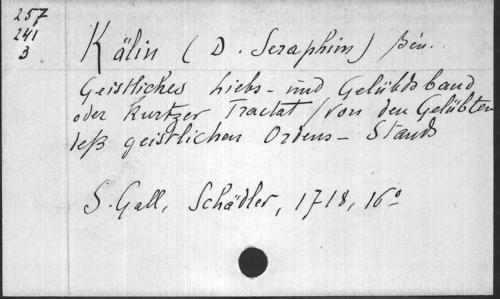 257
241
3
Kälin (D. Seraphim) Bén.
Geistliches Liebs- und Gelübdsband
oder Kurtzer Tractat / von den Gelübten
deß geistlichen Ordens-Stands
S. Gall, Schädler, 1718, 16°